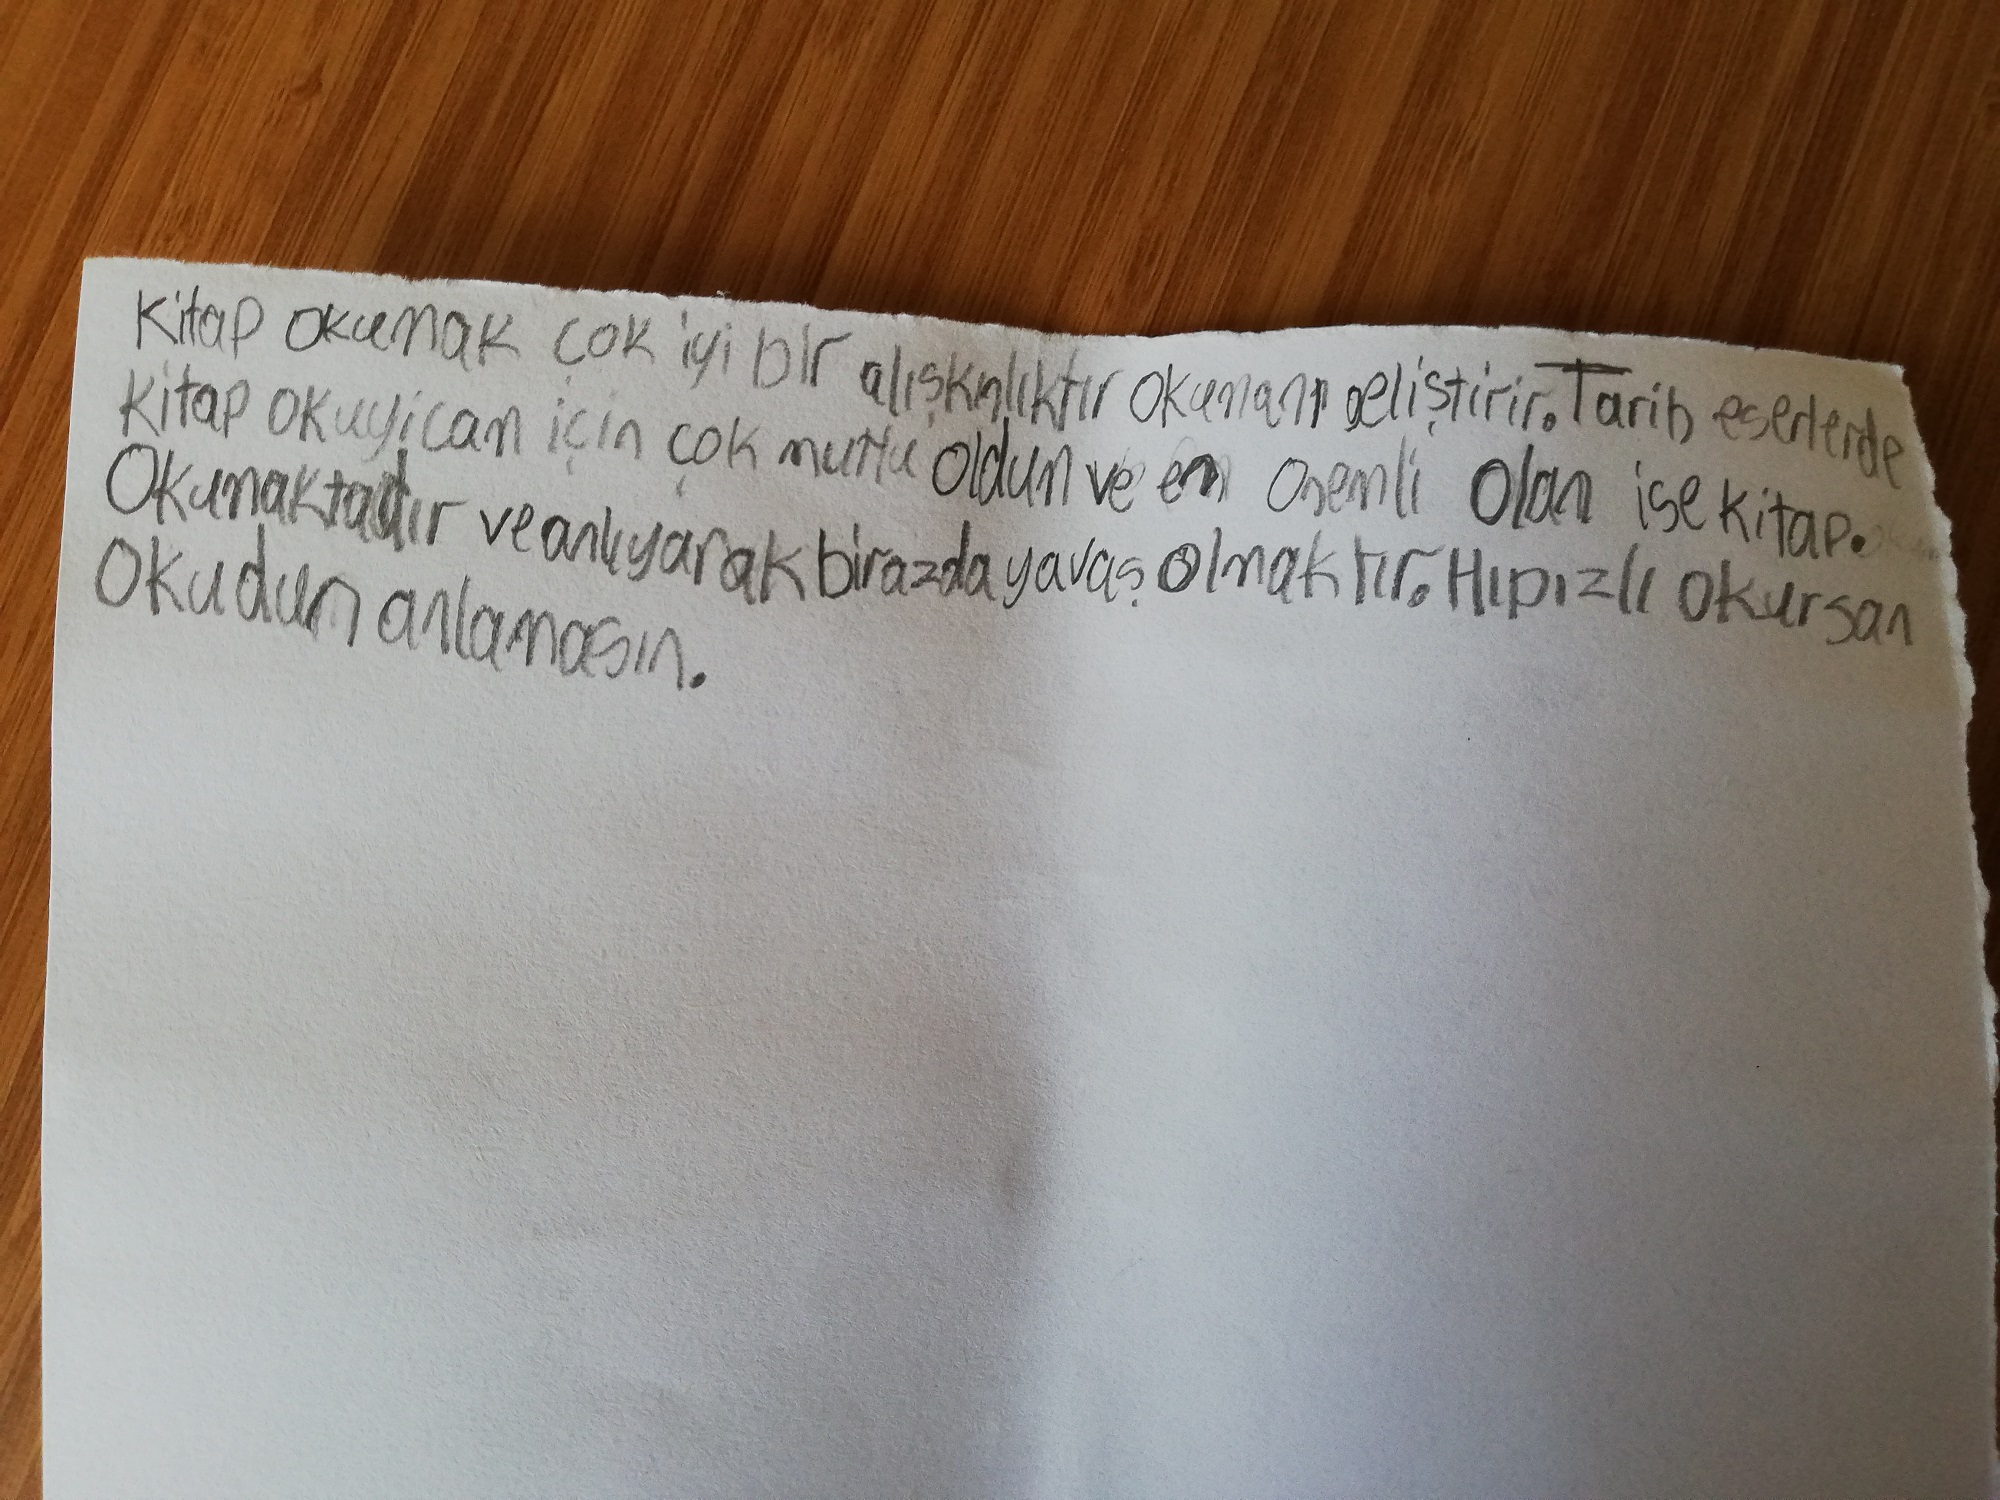 Kitap okumak çok iyi bir alışkınlıktır okumanı geliştirir. Tarih eserlerde
kitap okuyican için çok mutlu oldun ve en önemli olan ise kitap.
Okumaktadır ve anlıyarak birazda yavaş olmaktır. Hıpızlı okursan
Okudun anlamasın.